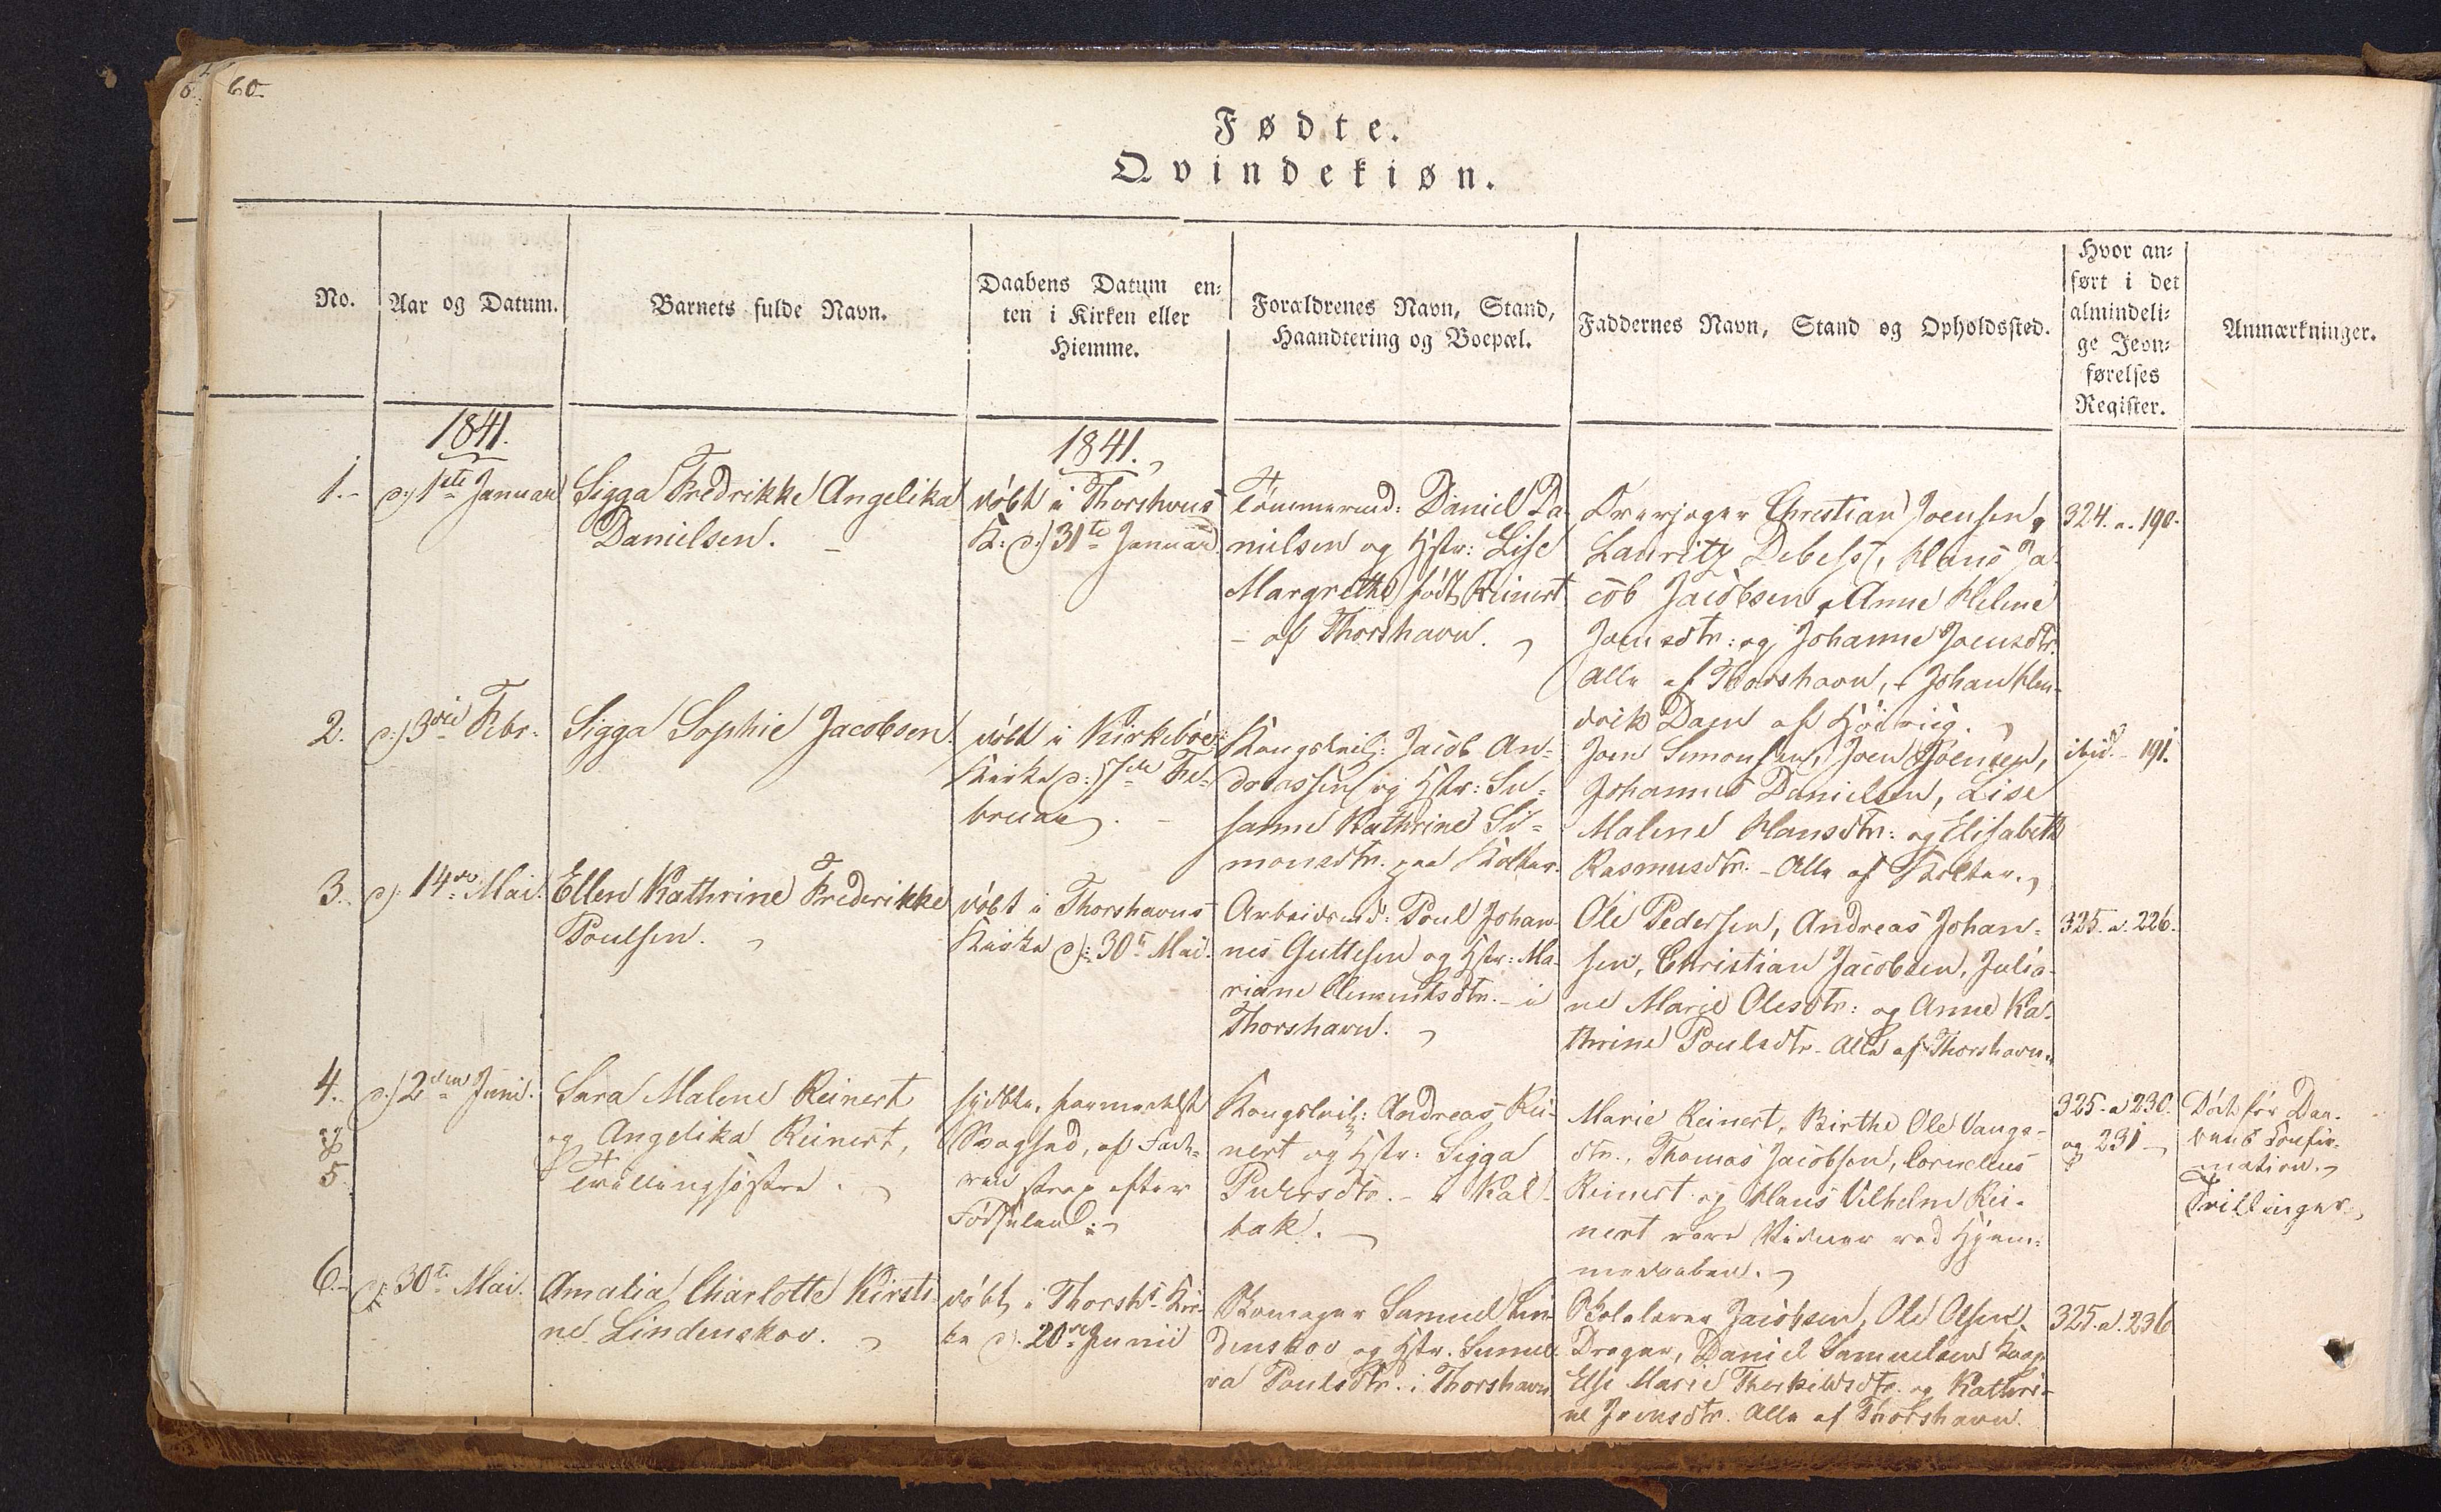 60.
Fødte.
Qvindekiøn.
No.
Aar og Datum.
Barnets fulde Navn.
Daabens Datum en-
ten i Kirken eller
Hiemme.
Forældrenes Navn, Stand,
Haandtering og Boepæl.
Faddernes Navn, Stand og Opholdssted.
Hvor an-
ført i det
almindeli-
ge Jevn-
førelses
Register.
Anmærkninger.
1841.
1841.
1.
d: 1ste Januar
Sigga Fredrikke Angelika
Danielsen.
døbt i Thorshavns
K: d: 31te Januar
Tømmermd: Daniel Da-
nielsen og Hstr: Lise
Margrethe født Reinert
- af Thorshavn.
Overjæger Christian Joensen,
Lauritz Debess, Hans Ja-
cob Jacobsen, Anne Helene
Joensdtr: og Johanne Joensdtr.
Alle af Thorshavn, + Johan Hen-
drik Dam af Höivig.
324. a. 190.
2.
d: 3die Febr.
Sigga Sophie Jacobsen.
døbt i Kirkebøe
Kirke d: 7de Fe-
bruar.
Kongsleil: Jacob An-
dreassen og Hstr: Su-
sanne Kathrine Si-
monsdtr. paa Kolter.
Joen Simonsen, Joen Joensen,
Johannes Danielsen, Lise
Malene Hansdtr: og Elisabeth
Rasmusdtr. - Alle af Kolter.
ibid. - 191.
3.
d: 14de Mai.
Ellen Kathrine Frederikke
Poulsen.
døbt i Thorshavns
Kirke d: 30te Mai.
Arbeidsmd: Poul Johan-
nes Guttesen og Hstr: Ma-
riane Clementsdtr. - i
Thorshavn.
Ole Pedersen, Andreas Johan-
sen, Christian Jacobsen, Julia-
ne Marie Olesdtr: og Anne Ka-
thrine Poulsdtr. Alle af Thorshavn.
325. a. 226.
4.
og
5.
d: 2den Juni.
Sara Malene Reinert
og Angelika Reinert,
Tvillingsøstre.
hjdbte, formedelst
Svaghed, af Fade-
ren strax efter
Fødselen.
Kongsleil: Andreas Rei-
nert og Hstr: Sigga
Pedersdtr. - i Kal-
bak.
Marie Reinert, Birthe Ole Vangs-
dtr., Thomas Jacobsen, Cornelius
Reinert og Hans Vilhelm Rei-
nert vare Vidner ved Hjem-
medaaben.
325. a 230.
og 231
Døde før Daa-
bens Confir-
mation.
Tvillinger.
6.
d: 30te Mai.
Amalia Charlotte Kirsti-
ne Lindenskov.
døbt i Thorshs. Kir-
ke d. 20de Junii
Skomager Samuel Lin-
denskov og Hstr. Sunne-
va Poulsdtr. i Thorshavn
Skolelærer Jacobsen, Ole Olsen
Drager, Daniel Samuelsen
Else Marie Therkildsdtr. og Kathri-
ne Joensdtr. Alle af Thorshavn.
325. a. 236